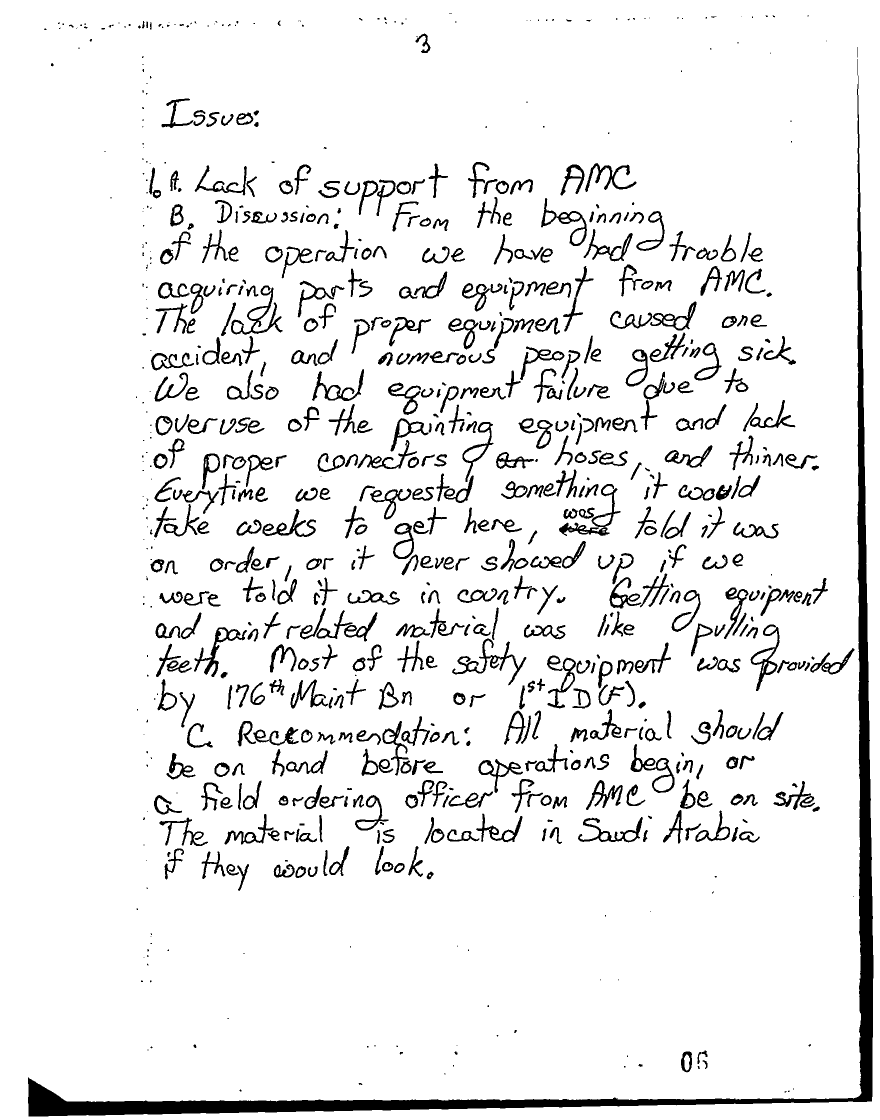 3
Issues:
1. A. Lack of support from AMC
B. Discussion: From the beginning
of the operation we have had trouble
acquiring parts and equipment from AMC.
The lack of proper equipment caused one
accident, and numerous people getting sick.
We also had equipment failure due to
overuse of the painting equipment and lack
of proper connectors, or hoses, and thinner.
Everytime we requested something it would
take weeks to get here, was were told it was
on order, or it never showed up if we
were told it was in country. Getting equipment
and paint related material was like pulling
teeth. Most of the safety equipment was provided
by 176th Maint Bn or 1st ID(F).
C. Reccommendation: All material should
be on hand before operations begin, or
a field ordering officer from AMC be on site.
The material is located in Saudi Arabia
if they would look.